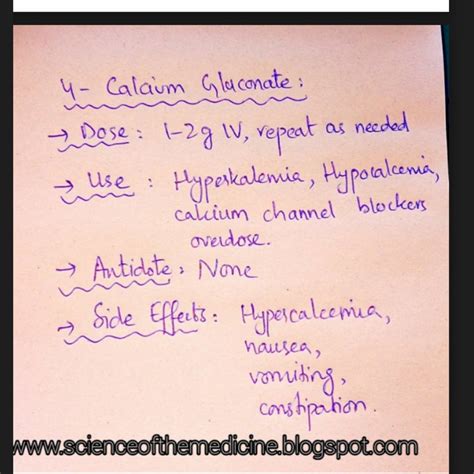 4- Calcium Gluconate:
→ Dose: 1-2g IV, repeat as needed
→ Use: Hyperkalemia, Hypocalcemia,
calcium channel blockers
overdose.
→ Antidote: None
→ Side Effects: Hypercalcemia,
nausea,
vomiting,
constipation.
www.scienceofthemedicine.blogspot.com